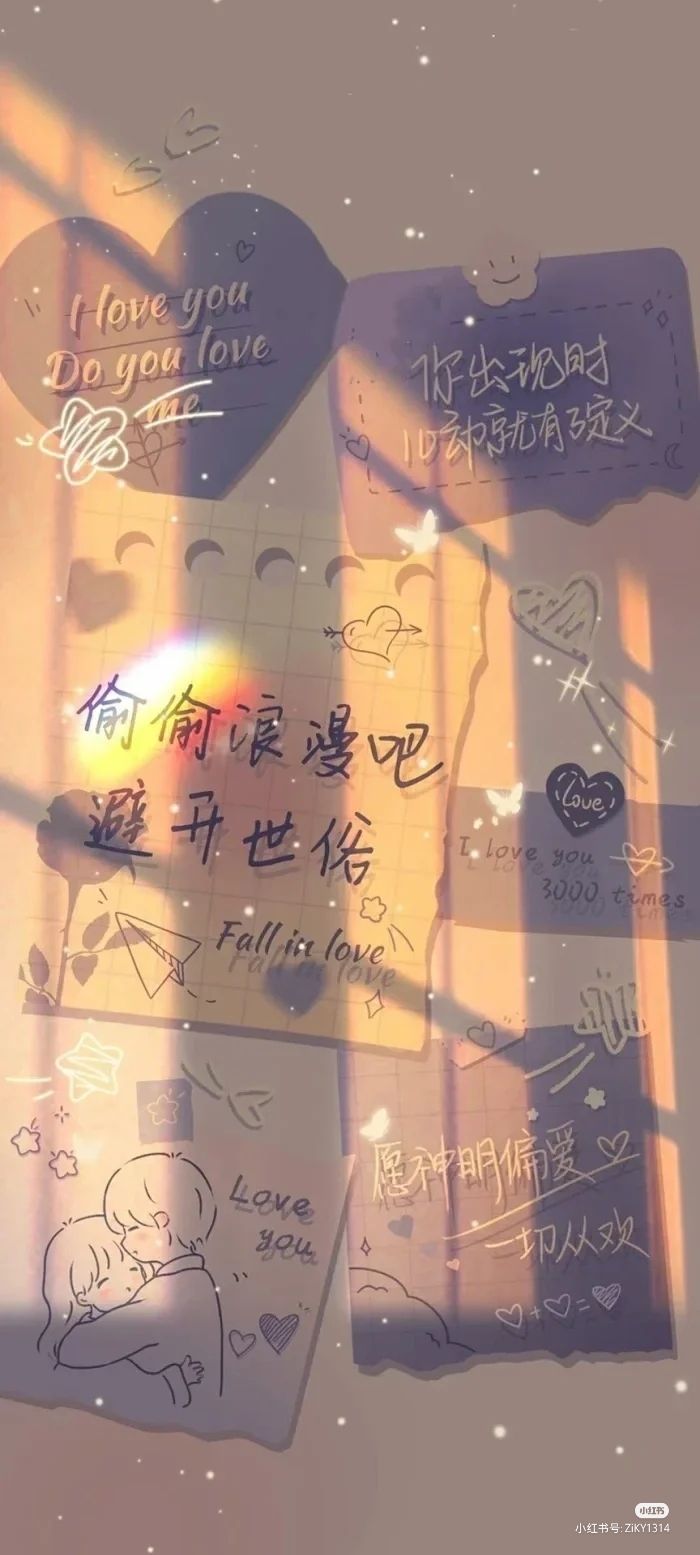 I love you
Do you love
me
你出现时
心动就有了定义
偷偷浪漫吧
避开世俗
Fall in love
Love
I love you
3000 times
Love
you
愿神明偏爱
一切从欢
+ =
小红书
小红书号: ZiKY1314